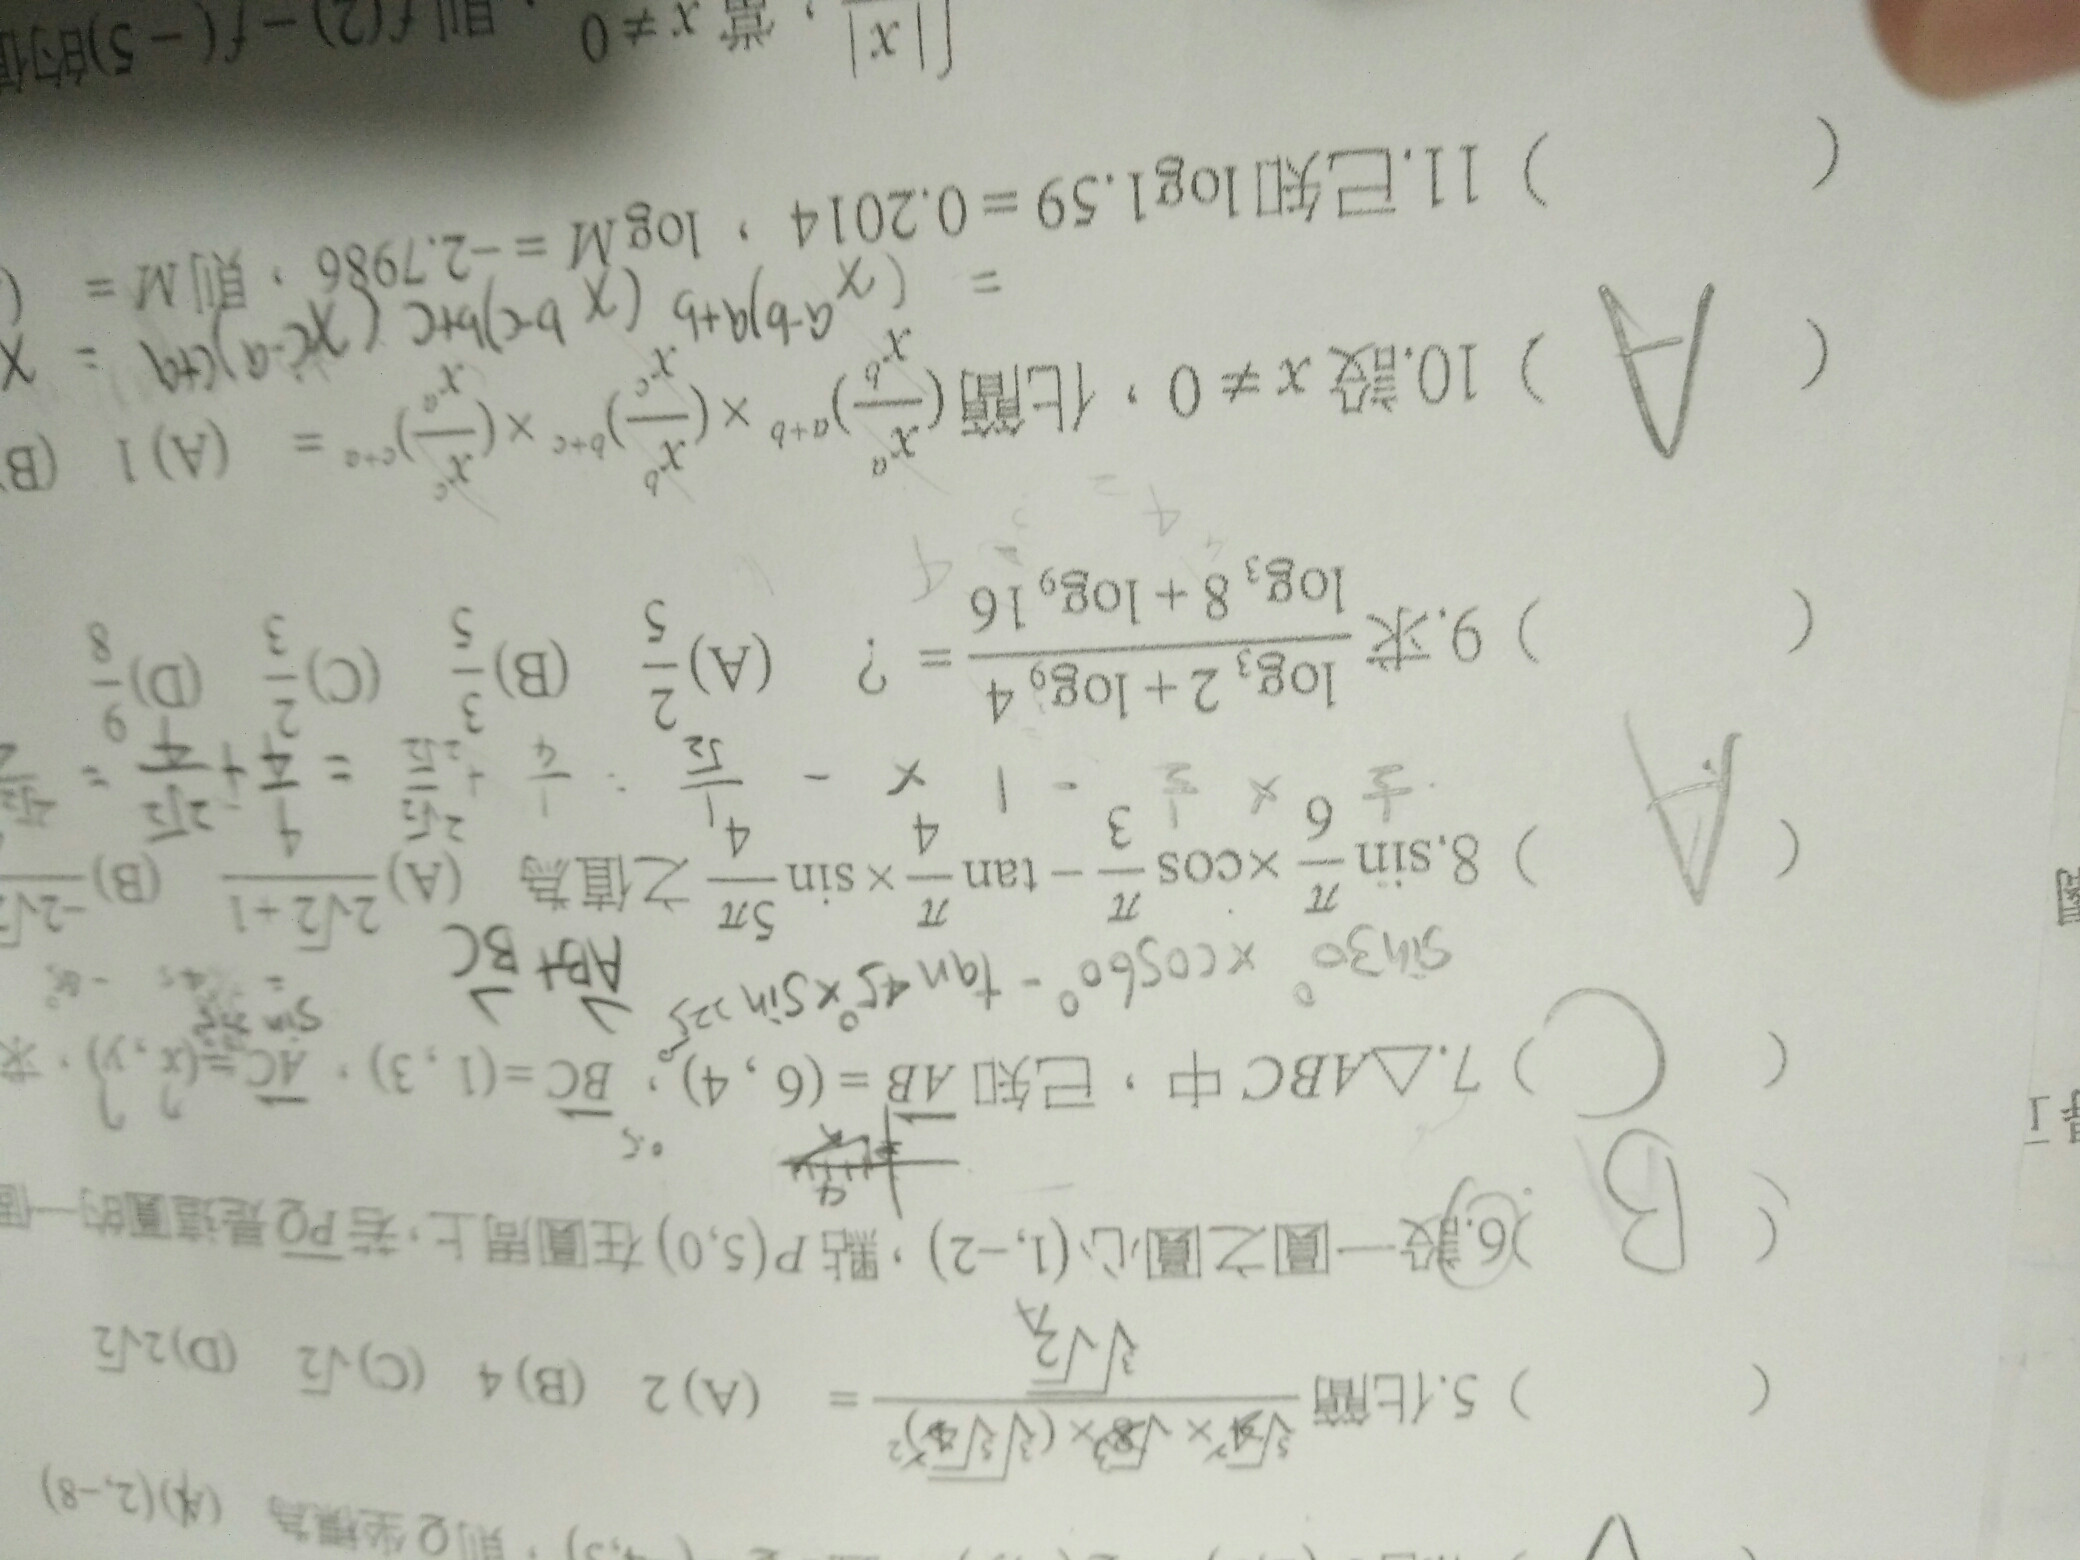 則Q坐標為 (A)(2,-8)
( ) 5.化簡 = (A)2 (B)4 (C)√2 (D)2√2
( B ) 6.設一圓之圓心(1,-2),點P(5,0)在圓周上,若PQ是這圓的一個
4
( C ) 7.△ABC中,已知 AB=(6,4),BC=(1,3),AC=(x,y),求
sin30° ×cos60° - tan45°×sin225° AB+BC
( A ) 8.sin π/6 ×cos π/3 -tan π/4 ×sin 5π/4 之值為 (A) (2√2+1)/4 (B)
1/2 × 1/2 - 1 × - 1/√2 : 1/4 + 2√2 = 1/4 + 2√2/4 =
( ) 9.求 (log₃2+log₉4)/(log₃8+log₉16) = ? (A) 2/5 (B) 3/5 (C) 2/3 (D) 9/8
( A ) 10.設 x≠0,化簡 (xᵃ/xᵇ)ᵃ⁺ᵇ×(xᵇ/xᶜ)ᵇ⁺ᶜ×(xᶜ/xᵃ)ᶜ⁺ᵃ = (A)1 (B)
= (x a-b)a+b (x b-c)b+c (x c-a)c+a = x
( ) 11.已知log1.59=0.2014,logM=-2.7986,則M= (
|x|,當x≠0,則f(2)-f(-5)的值